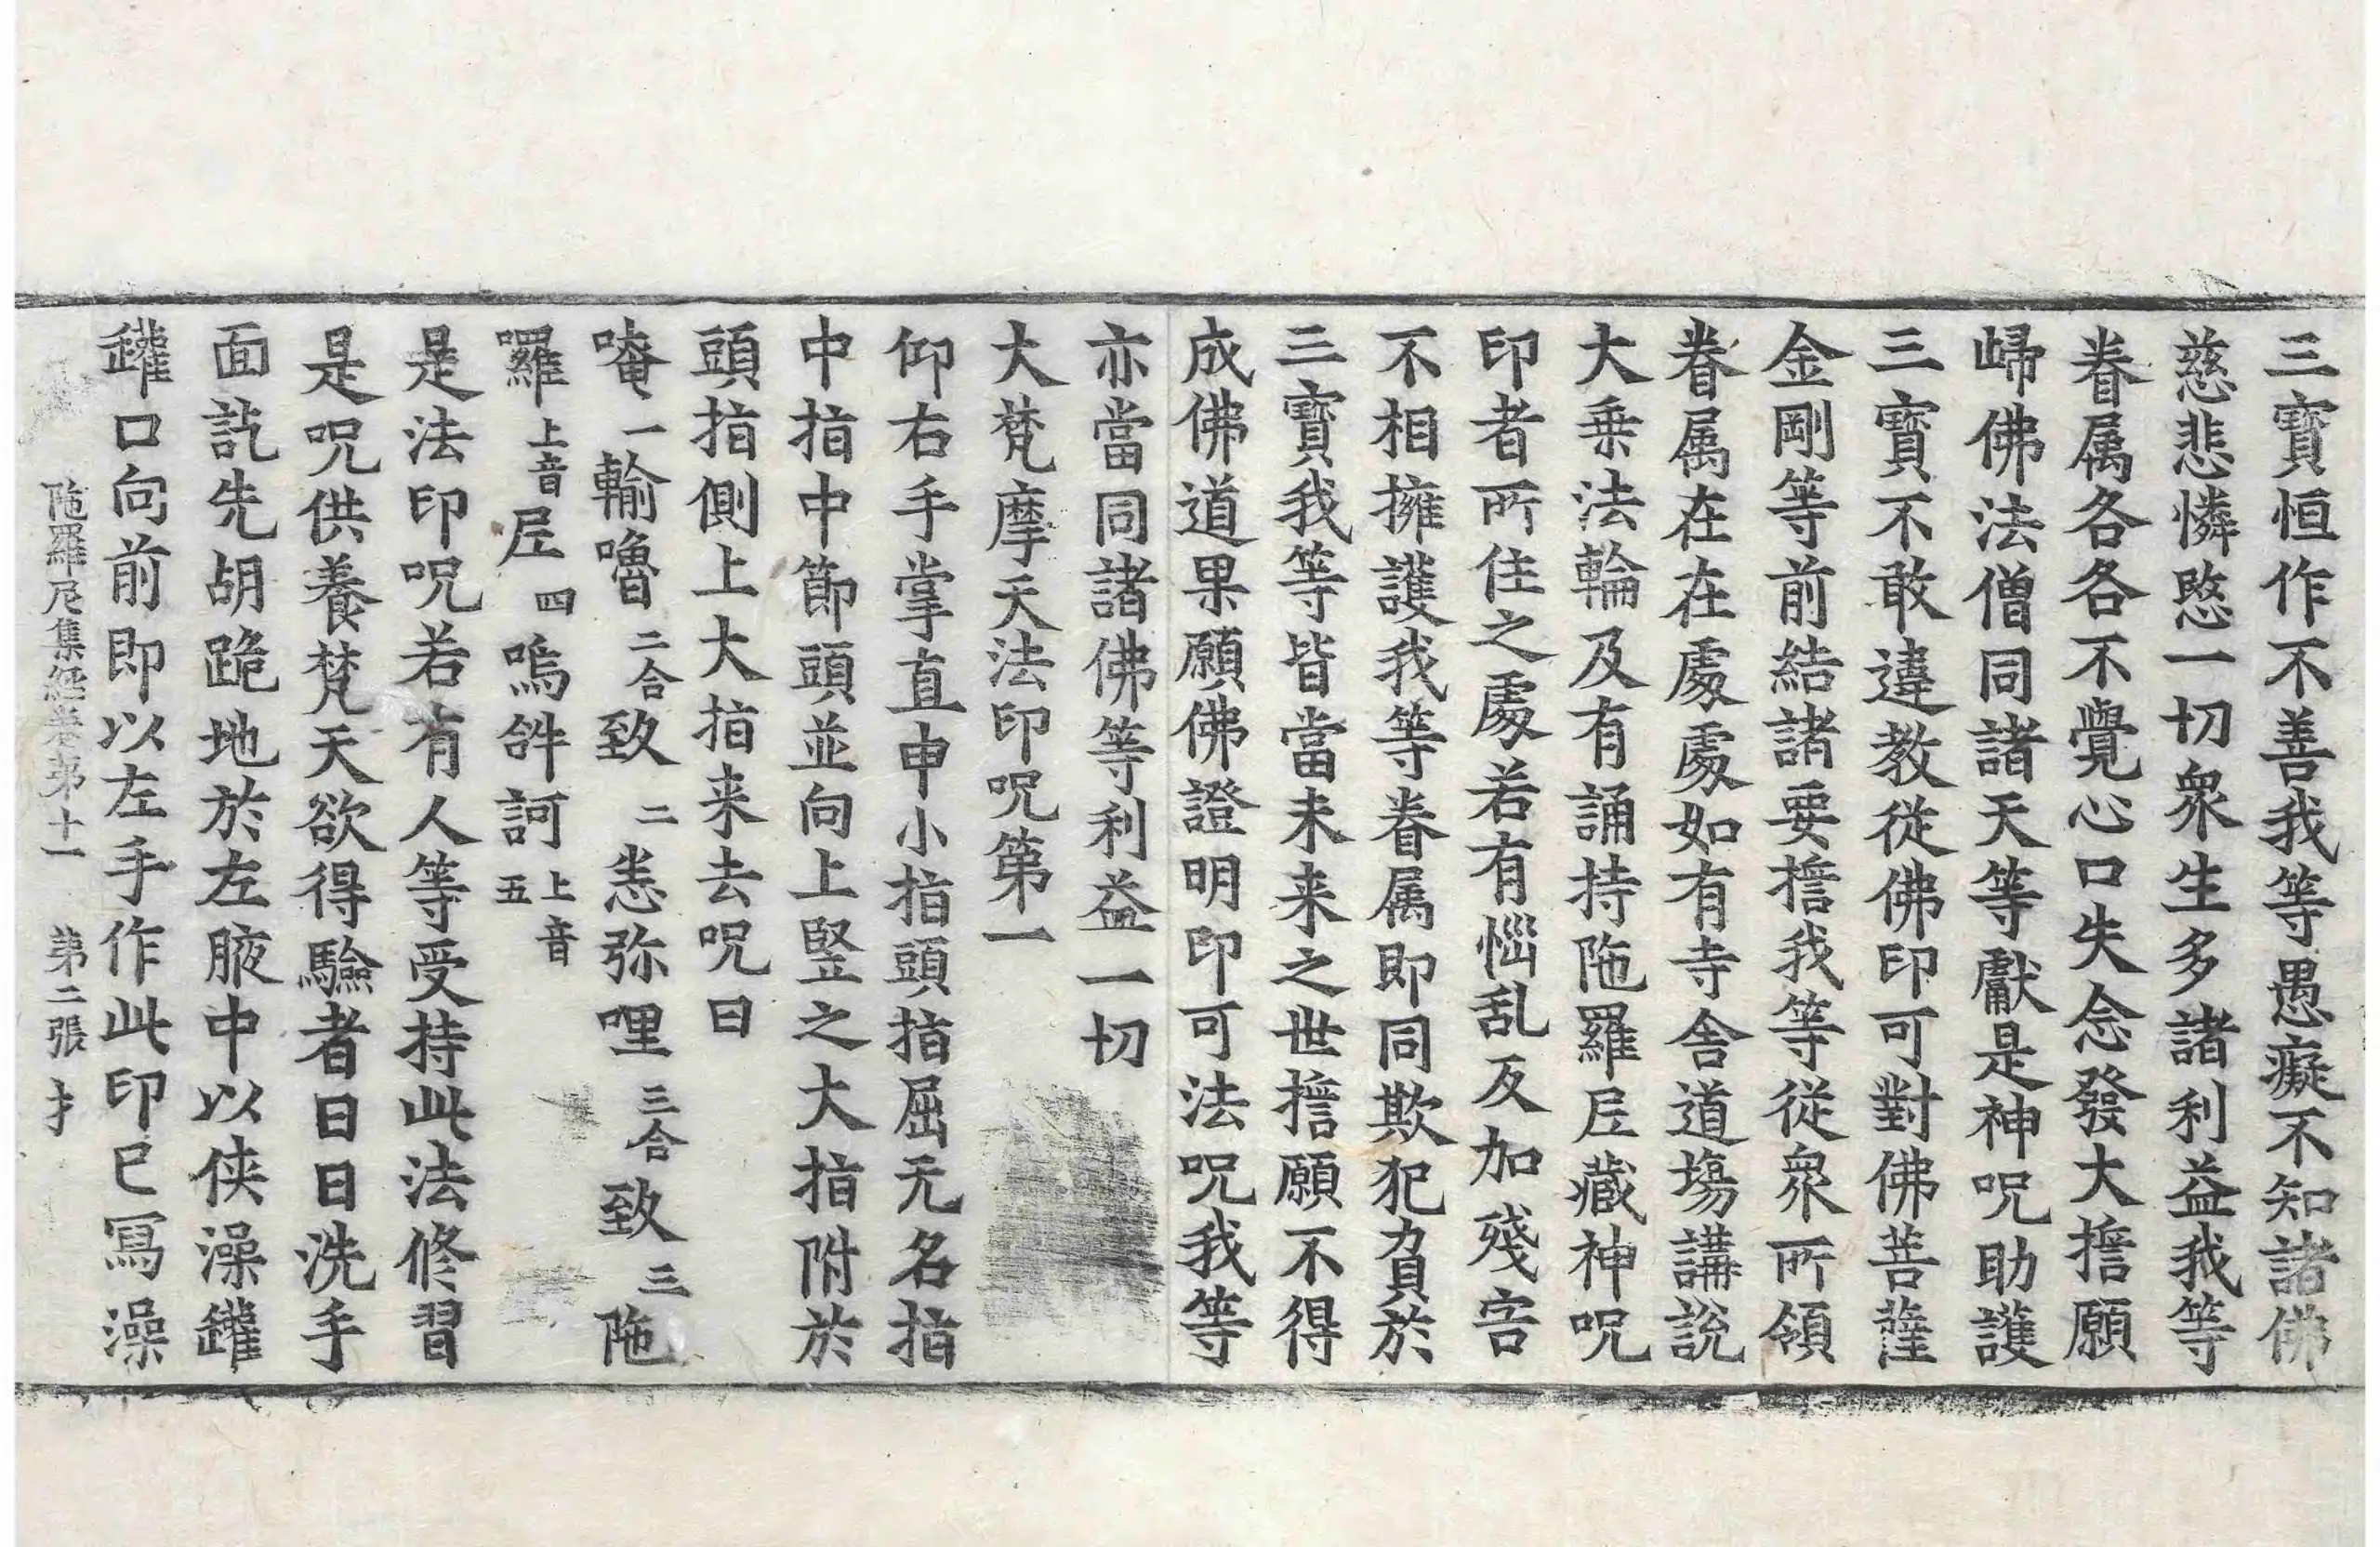 三寶恒作不善我等愚癡不知諸佛
慈悲憐愍一切衆生多諸利益我等
眷属各各不覺心口失念發大擔願
歸佛法僧同諸天等獻是神呪助護
三寶不敢違教從佛印可對佛菩薩
金剛等前結諸要擔我等從衆所領
眷属在在處處如有寺舍道場講說
大乗法輪及有誦持陁羅𡰱藏神呪
印者所住之處若有惱乱反加殘害
不相擁護我等眷属即同欺犯負於
三寶我等皆當未来之世擔願不得
成佛道果願佛證明印可法呪我等
亦當同諸佛等利益一切
大梵摩天法印呪第一
仰右手掌直申小指頭指屈无名指
中指中節頭並向上竪之大指附於
頭指側上大指来去呪曰
唵一輸嚕二合致二恙弥哩三合致三陁
囉上音𡰱四嗚𤙖訶上音五
是法印呪若有人等受持此法修習
是呪供養梵天欲得驗者日日洗手
面訖先胡跪地於左腋中以俠澡罐
罐口向前即以左手作此印已冩澡
陁羅尼集經卷第十一　第二張　才